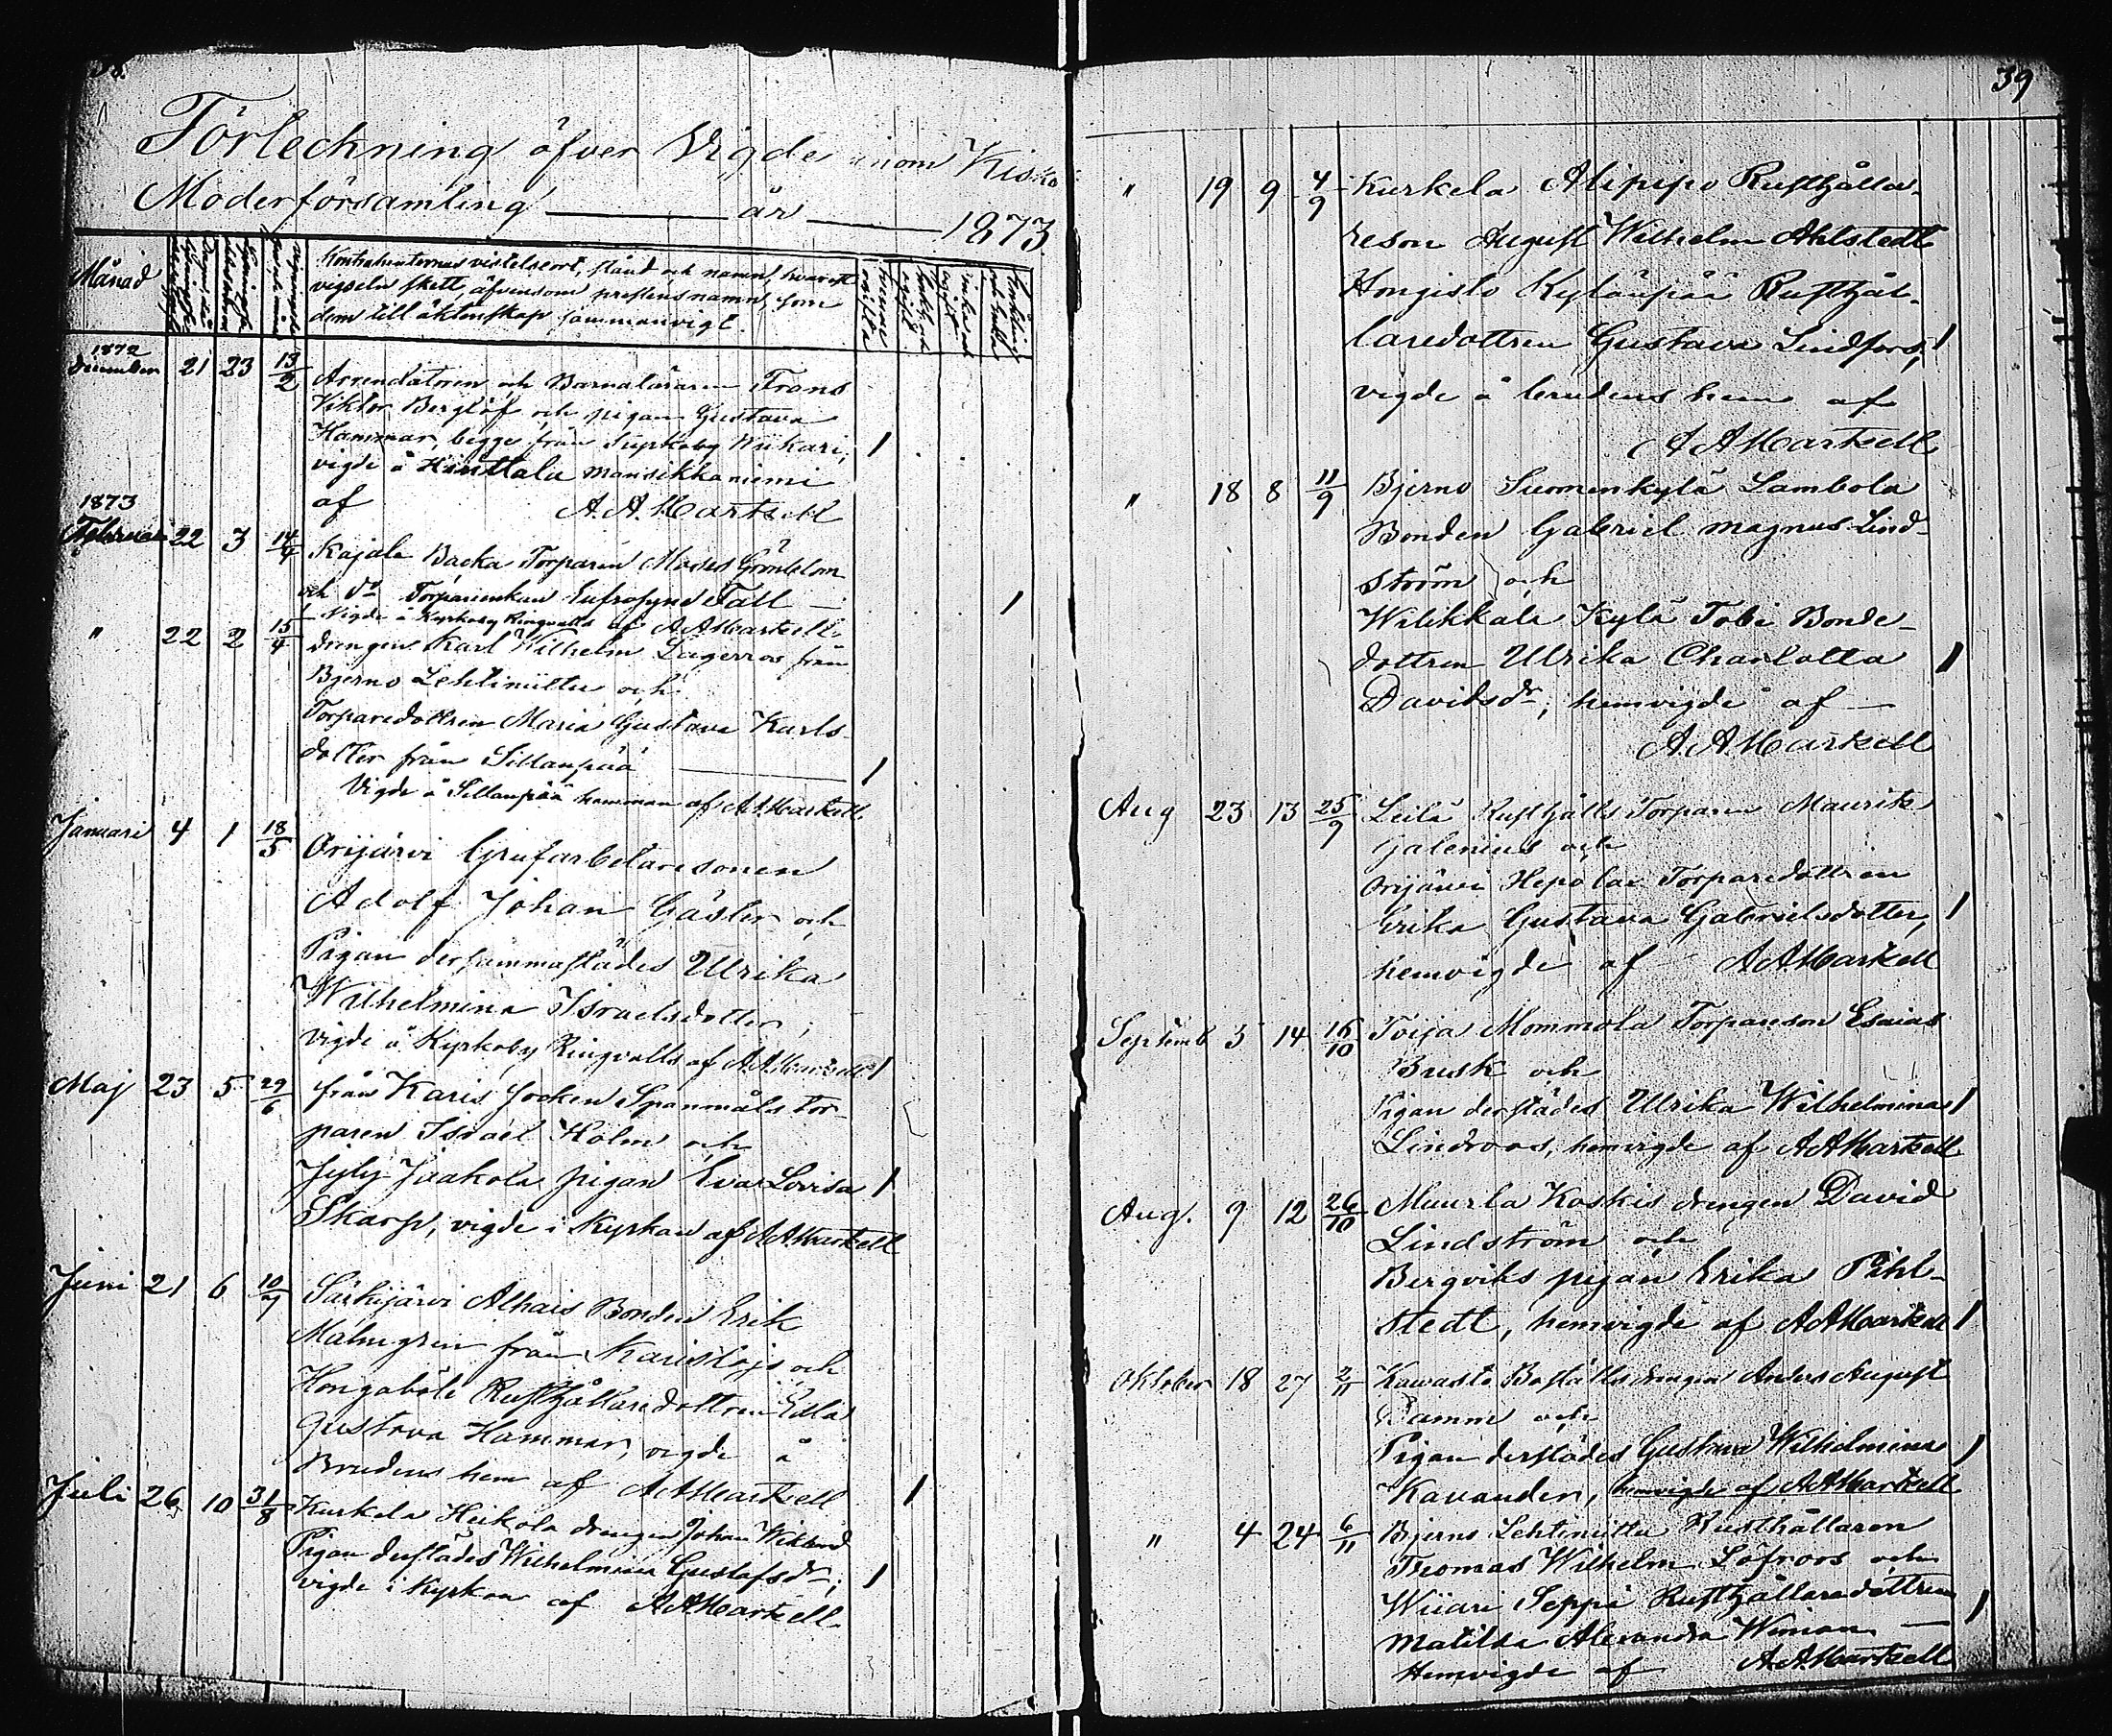 Förteckning öfver Vigde inom Kisko
Moderförsamling år 1873.
Månad
Kontrahenternas vistelseort, stånd och namn, hvarest
vigseln skett, äfvensom prestens namn, som
dem till äktenskap sammanvigt.
1872
December 21 23 13/2 Arrendatoren och Barnaläraren Frans
Viktor Berglöf och pigan Gustava
Hammar, begge från Wiikari,
vigde å mansikkaniemi
af A. A. Martell
1873
Februari 22 3 14/4 Kajala Backa Torparen Moses Grönblom
och do Torpareenkan Eufrosyne Fäll
Vigde å Kyrkoby Ringvalls af A A Martell
" 22 2 15/4 drengen Karl Wilhelm Lagerros från
Bjerno Lehtiniittu och
Torparedottren Maria Gustava Karls
dotter från Sillanpää
Vigde å Sillanpää hemman af A A Martell
Januari 4 1 18/5 Orijärvi Grufarbetaresonen
Adolf Johan Gäsler och
Pigan dersammastädes Ulrika
Wilhelmina Israelsdotter;
vigde å Kyrkoby Ringvalls af A A Martell
Maj 23 5 29/6 från Karis socken Spanmåls tor-
paren Israel Holm och
Jyly Jaakola pigan Eva Lovisa
Skarp, vigde i Kyrkan af A A Martell
Juni 21 6 10/7 Särkijärvi Alhais Bonden Erik
Malmgren från Karislojo och
Hongaböle Rusthållaredottren Edla
Gustava Hammar, vigde å
Brudens hem af A A Martell
Juli 26 10 31/8 Kurkela Heikola drengen Johan Wiklund
Pigan derstädes Wilhelmina Gustafsdr;
vigde i Kyrkan af A A Martell
39
" 19 9 4/9 Kurkela Alipipo Rusthålla-
reson August Wilhelm Ahlstedt
Hongisto Kyläupää Rusthål-
laredottren Gustava Lindfors,
vigde å brudens hem af
A A Martell
" 18 8 11/9 Bjerno Suomenkylä Lambola
Bonden Gabriel Magnus Lind-
ström och
Wilikkala Kylä Tobi Bonde-
dottren Ulrika Charlotta
Davidsdr, hemvigde af
A. A Martell
Aug 23 13 25/9 Leilä Rusthålls Torparen Maurits
Galenius och
Orijärvi Hepolax Torparedottren
Erika Gustava Gabrielsdotter,
hemvigde af A A Martell
Septemb 3 14 16/10 Toija Mommola Torpareson Esaias
Brusk och
Pigan derstädes Ulrika Wilhelmina
Lindroos, hemvigde af A A Martell
Aug. 9 12 26/10 Muurla Koskis drengen David
Lindström och
Bergviks pigan Erika Pihl-
stedt, hemvigde af A A Martell
Oktober 18 27 2/11 Kavasto Boställs drengen Anders August
Damm och
Pigan derstädes Gustava Wilhelmina
Kavander, hemvigde af A A Martell
" 4 24 6/11 Bjerno Lehtiniittu Rusthållaren
Thomas Wilhelm Löfroos och
Wiiari Seppä Rusthållaredottren
Matilda Alexandra Wiman
Hemvigde af A. A. Martell